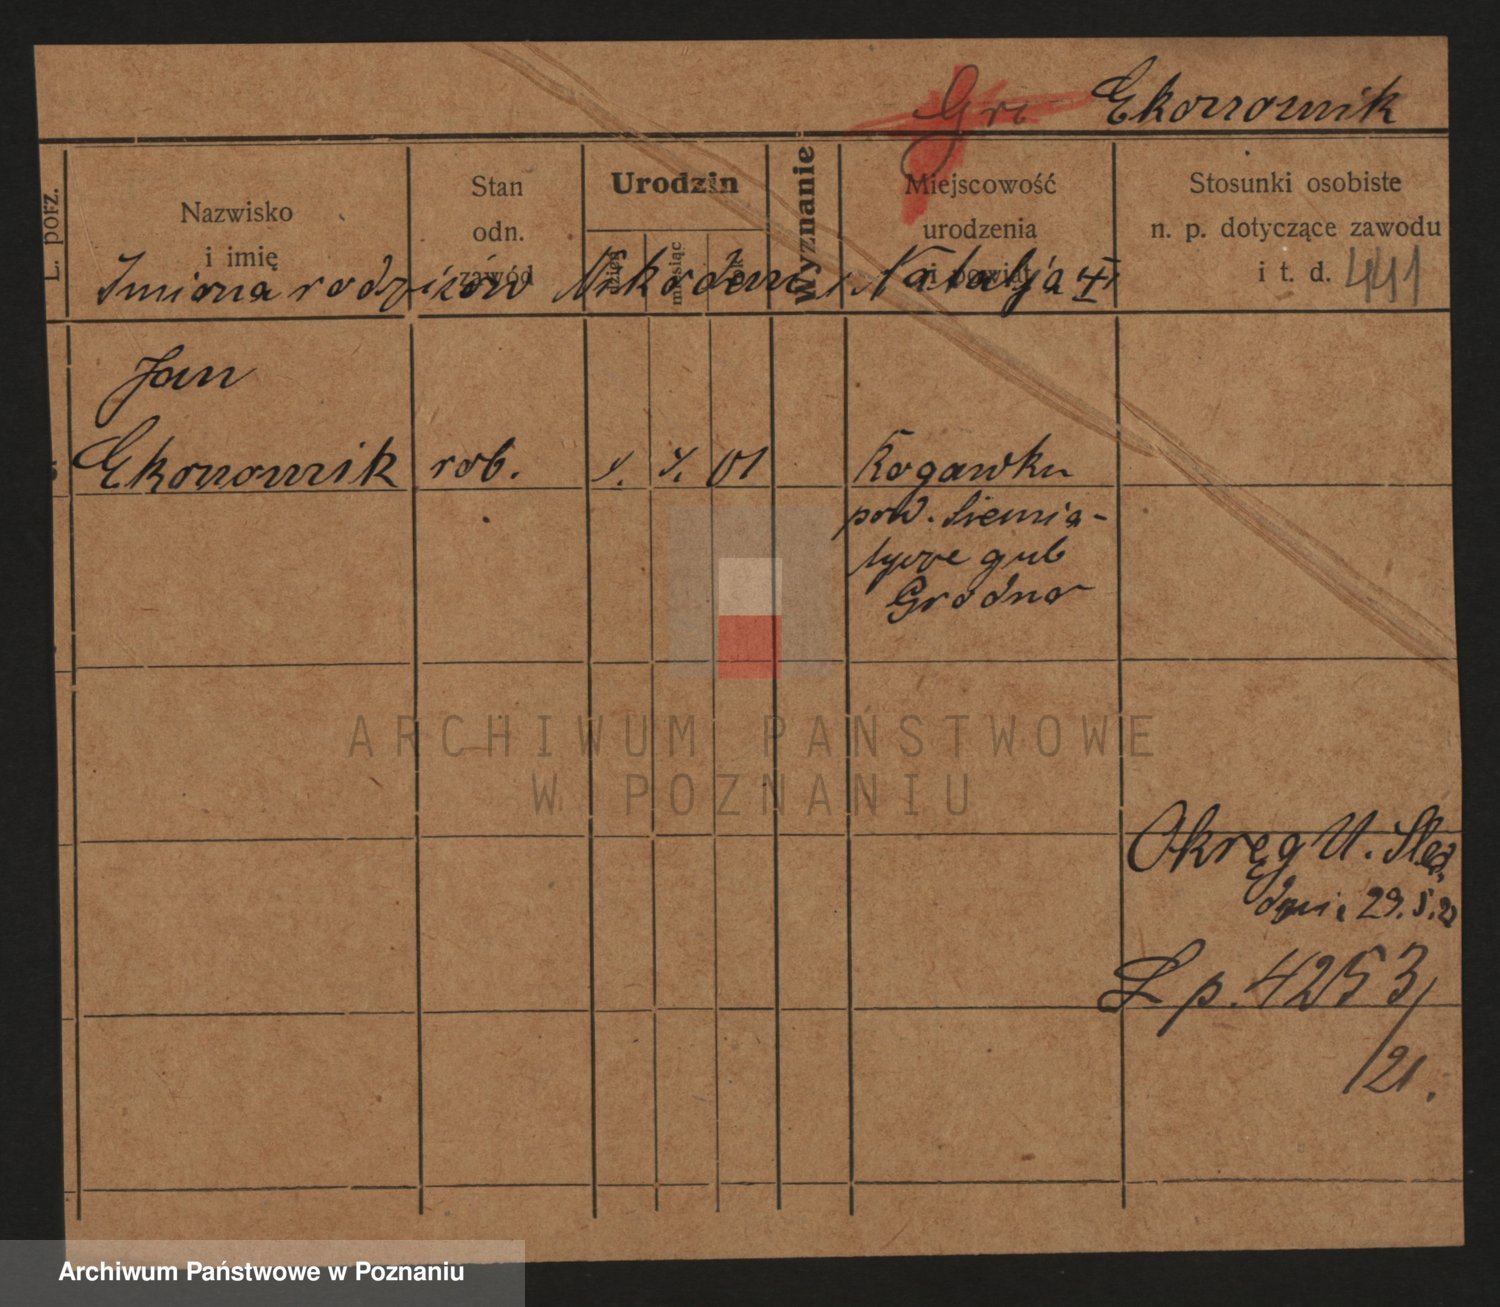 Gri Ekonomik
L. porz.
Nazwisko
i imię
Stan
odn.
zawód
Urodzin
dzień
miesiąc
rok
Wyznanie
Miejscowość
urodzenia
i powiat
Stosunki osobiste
n. p. dotyczące zawodu
i t. d. 441
Imiona rodziców Nikodem, Natalja
Jan
Ekonomik rob. 01 Rogawku
pow. Siemia-
tycze gub
Grodno
ARCHIWUM PAŃSTWOWE
W POZNANIU
Okręg U.
dnia 29.5.21
Lp. 4253/
/21.
Archiwum Państwowe w Poznaniu